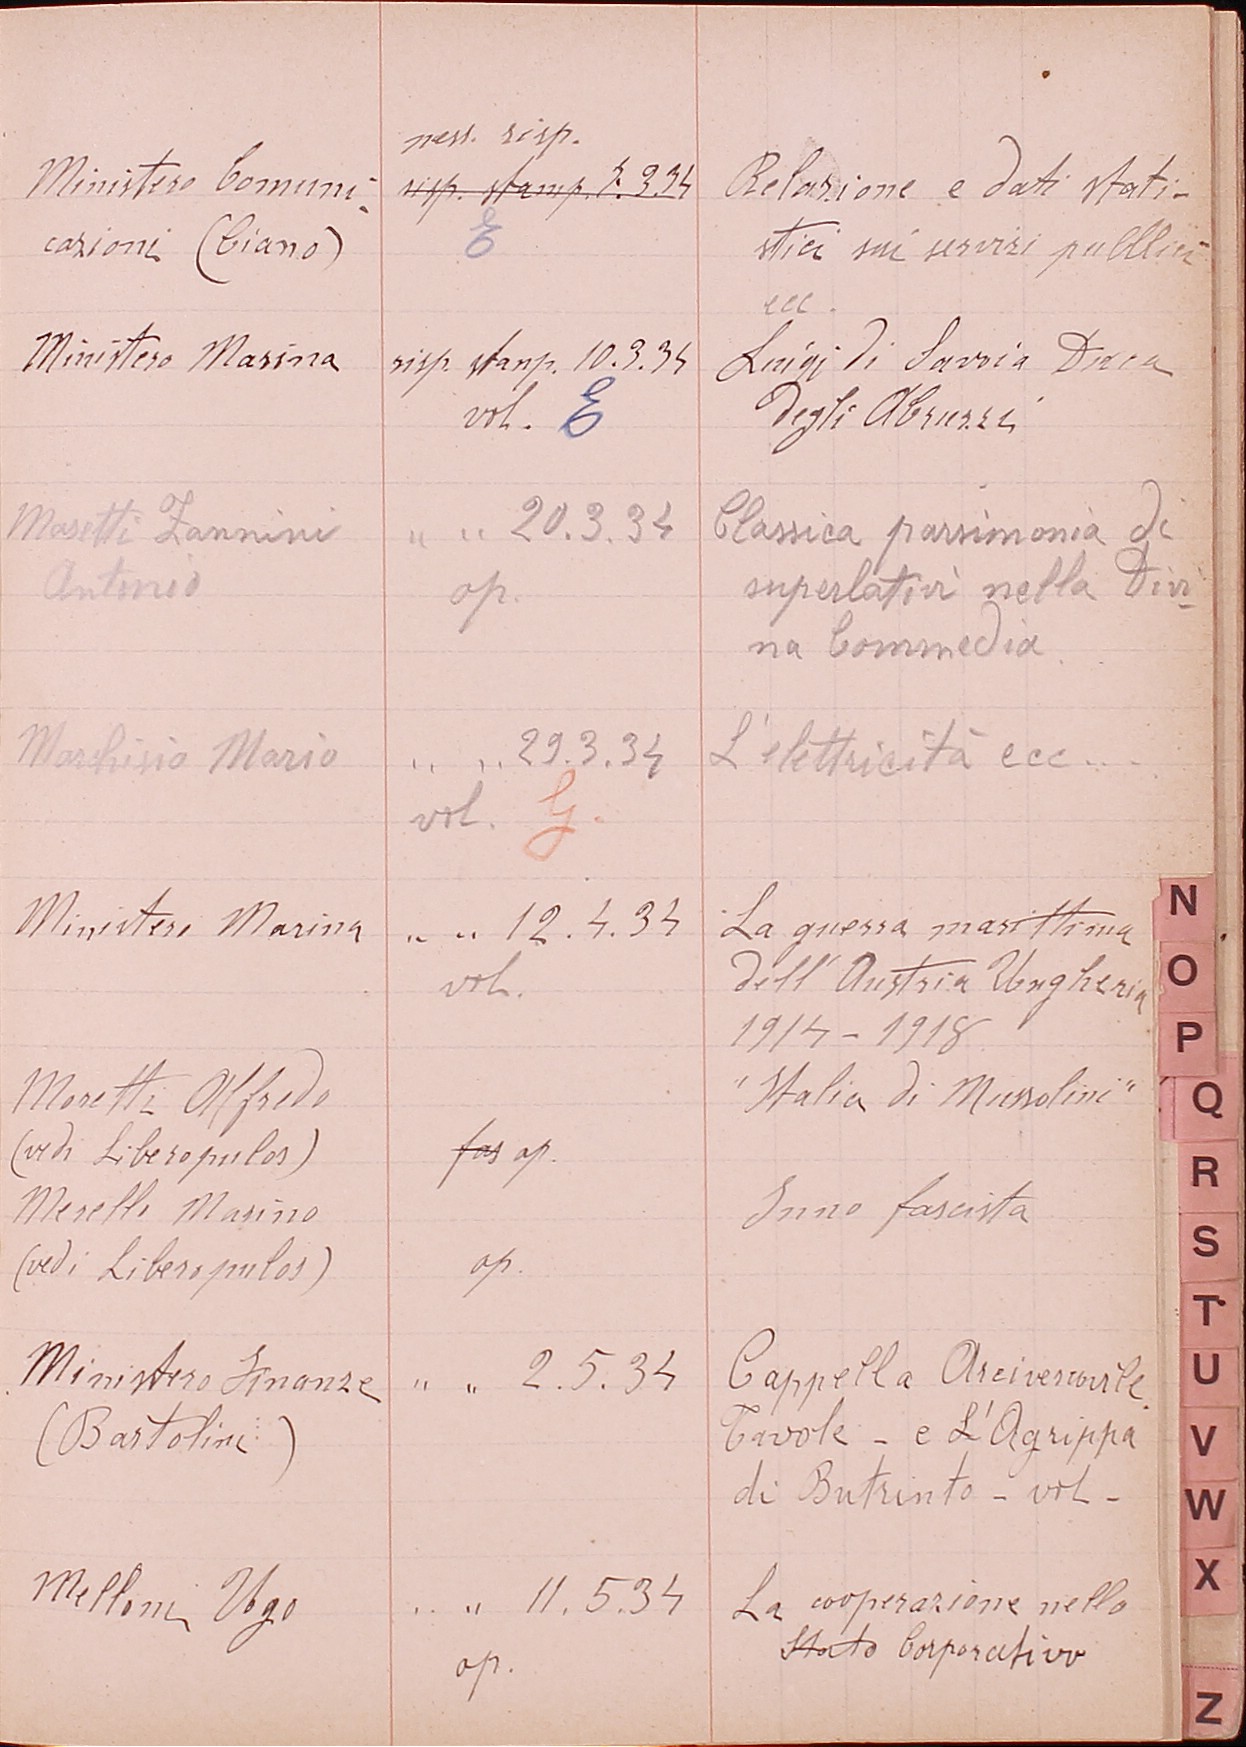 ness. risp.
Ministero Comuni- risp. stamp. 2.3.34 Relazione e dati stati-
cazioni (Ciano) E stici sui servizi pubblici
ecc.
Ministero Marina risp. stamp. 10.3.34 Luigi di Savoia Duca
vol. E degli Abruzzi
Masetti Zannini " " 20.3.34 Classica parsimonia di
Antonio op. superlativi nella Divi-
na Commedia.
Marchisio Mario " " 29.3.34 L'elettricità ecc....
vol. G.
Ministero Marina " " 12.4.34 La guerra marittima
vol. dell'Austria Ungheria
1914-1918
Moretti Alfredo "Italia di Mussolini"
(vedi Liberopulos) fas op.
Merelli Marino Inno fascista
(vedi Liberopulos) op.
Ministero Finanze " " 2.5.34 Cappella Arcivescovile
(Bartolini) Tavole - e L'Agrippa
di Butrinto - vol -
Melloni Ugo " " 11.5.34 La cooperazione nello
op. Stato Corporativo
N
O
P
Q
R
S
T
U
V
W
X
Z